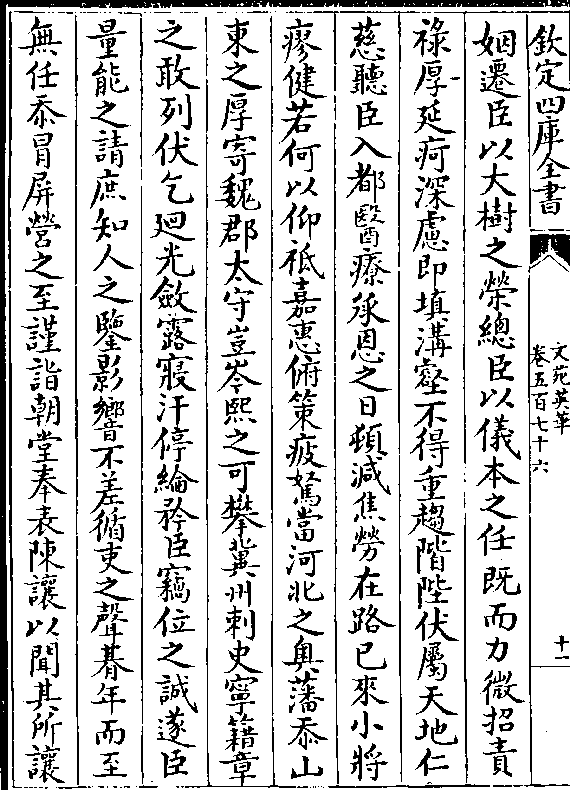 欽定四庫全書
文苑英華
卷五百七十六
十一
姻遷臣以大樹之榮總臣以儀本之任既而力微招責
祿厚延疴深慮即填溝壑不得重趨階陛伏屬天地仁
慈聽臣入都醫療承恩之日頓減焦勞在路已來小將
瘳健若何以仰祗嘉惠俯策疲駑當河北之奥藩忝山
東之厚寄魏郡太守豈岑熙之可攀冀州刺史寧籍章
之敢列伏乞廻光斂露寢汗停綸矜臣竊位之誠遂臣
量能之請庶知人之鑒影響不差循吏之聲朞年而至
無任忝冒屏營之至謹詣朝堂奉表陳讓以聞其所讓